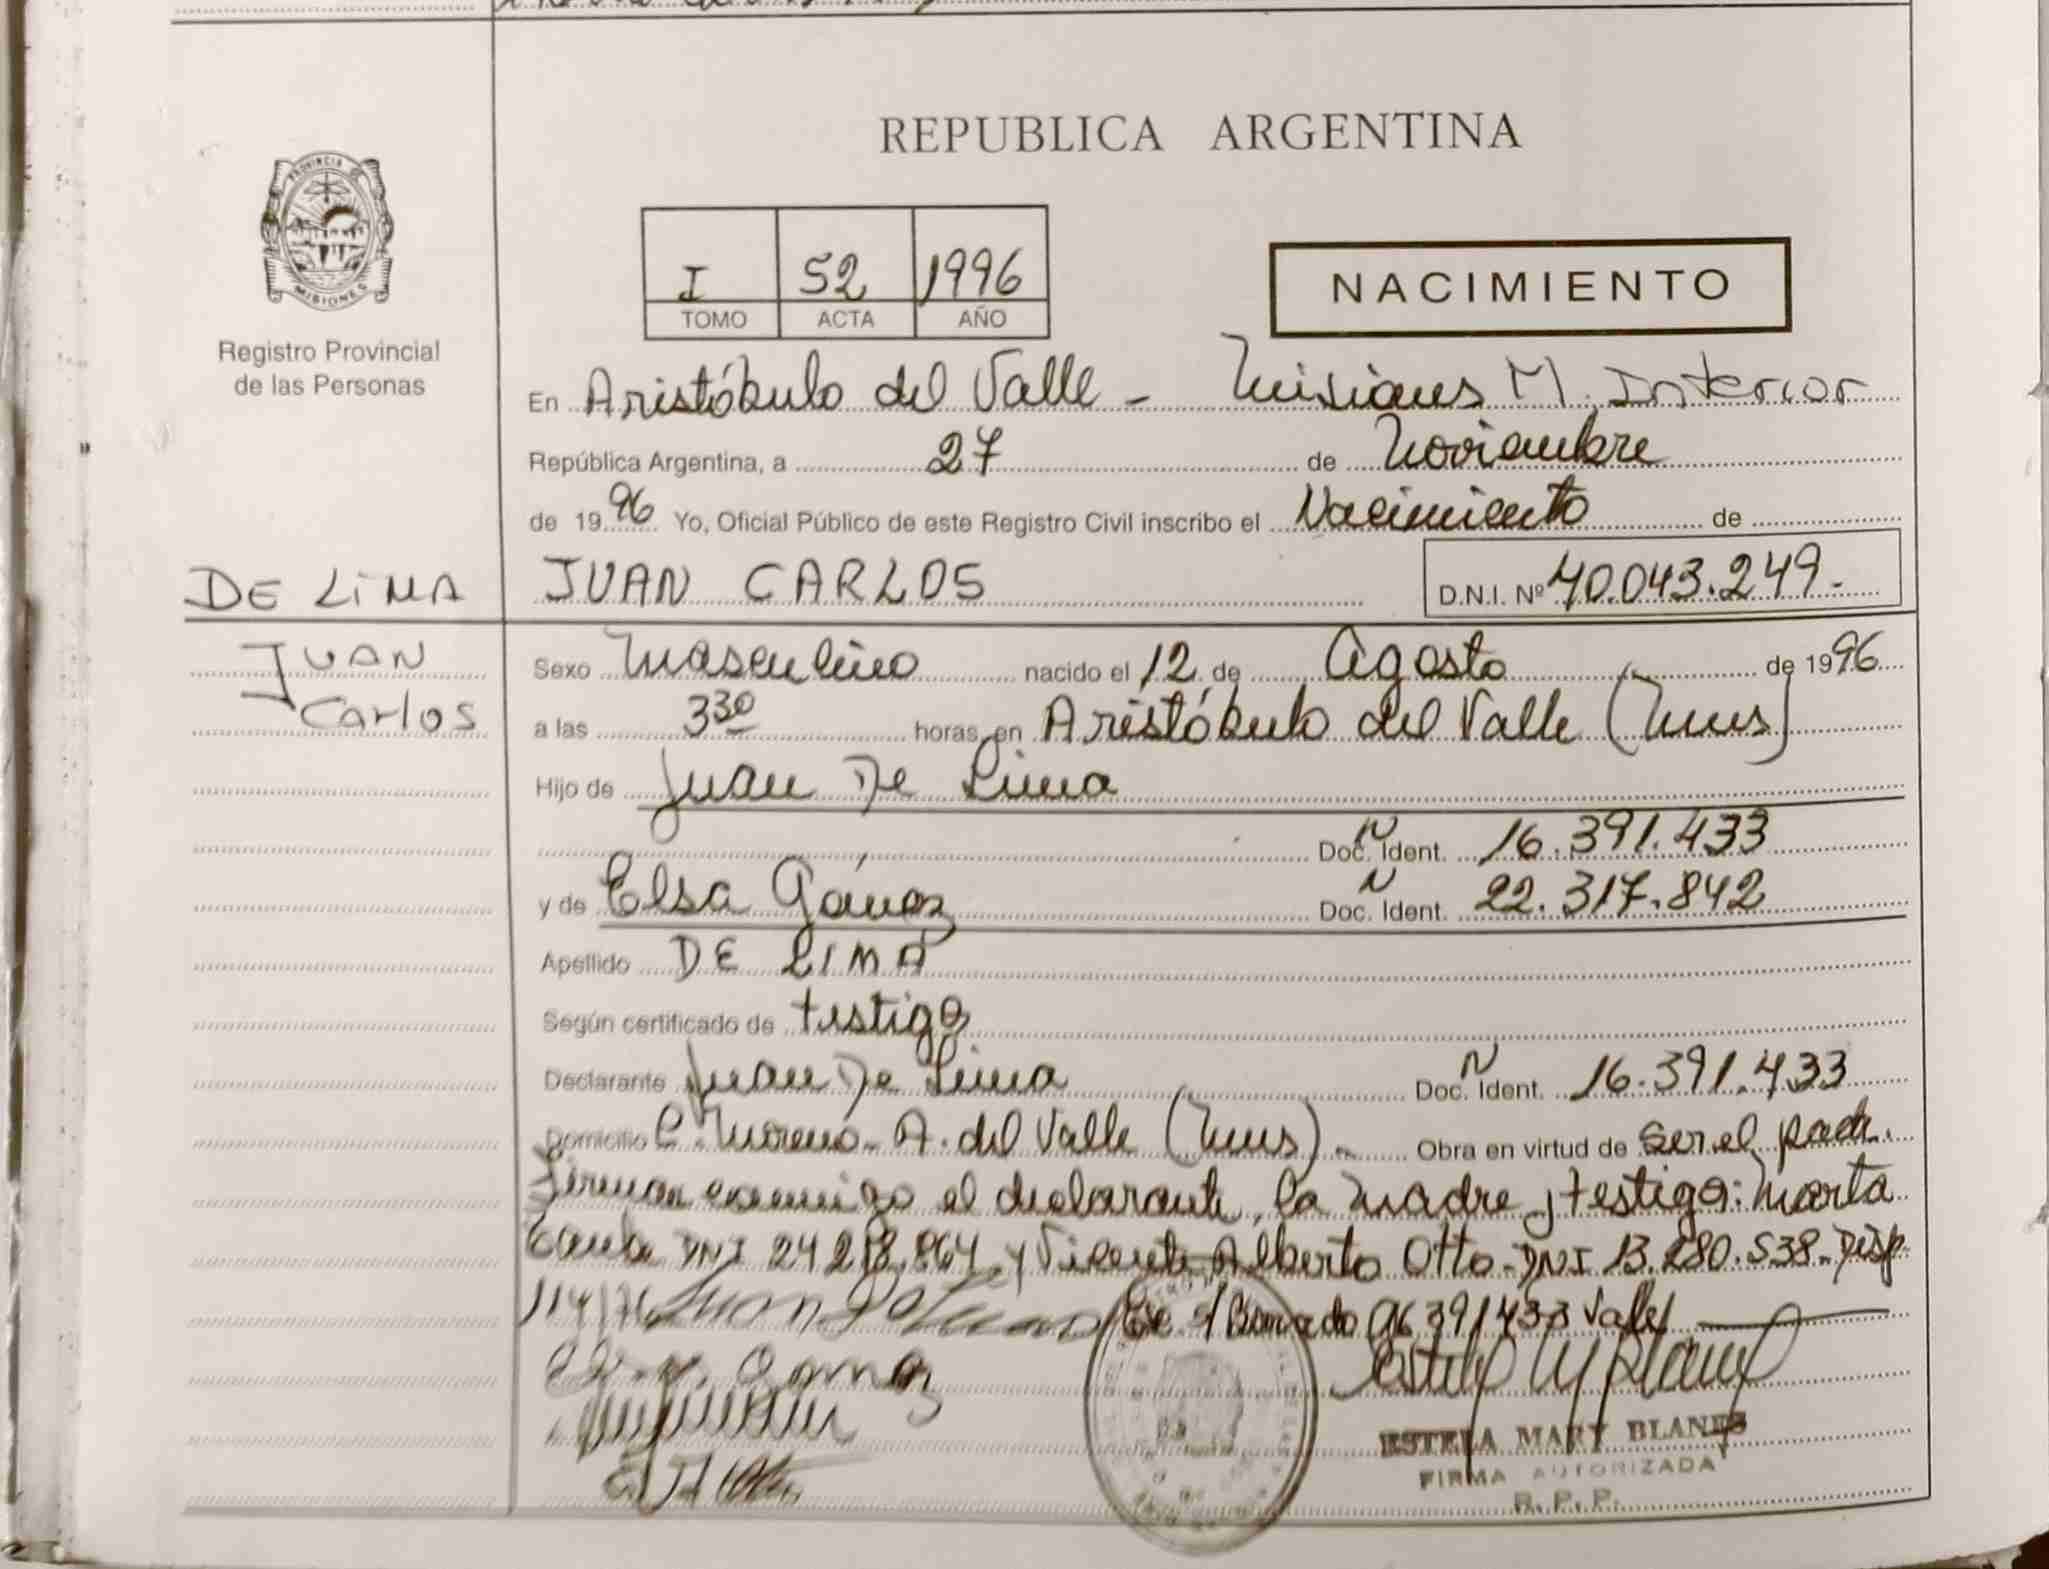 PROVINCIA DE
MISIONES
Registro Provincial
de las Personas
REPUBLICA ARGENTINA
I 52 1996
TOMO ACTA AÑO
NACIMIENTO
En Aristóbulo del Valle - Misiones M. Interior
República Argentina, a 27 de Noviembre
de 1996 Yo, Oficial Público de este Registro Civil inscribo el Nacimiento de
DE LIMA JUAN CARLOS D.N.I. Nº 40.043.249.-
Juan Carlos
Sexo Masculino nacido el 12 de Agosto de 1996
a las 3 30 horas en Aristóbulo del Valle (Mnes)
Hijo de Juan De Lima
Doc. N Ident. 16.391.433
y de Elsa Gómez Doc. N Ident. 22.317.842
Apellido DE LIMA
Según certificado de testigo
Declarante Juan De Lima Doc. N Ident. 16.391.433
Domicilio C. Moreno - A. del Valle (Mnes) - Obra en virtud de ser el padre.
Firman conmigo el declarante, la madre y testigo: Marta
DNI 24.218.864 y Vicente Alberto Otto - DNI 13.280.538 - Disp
114/76 s/ Borrado 16391433 Vale
ESTELA MARY BLANES
FIRMA AUTORIZADA
R. P. P.